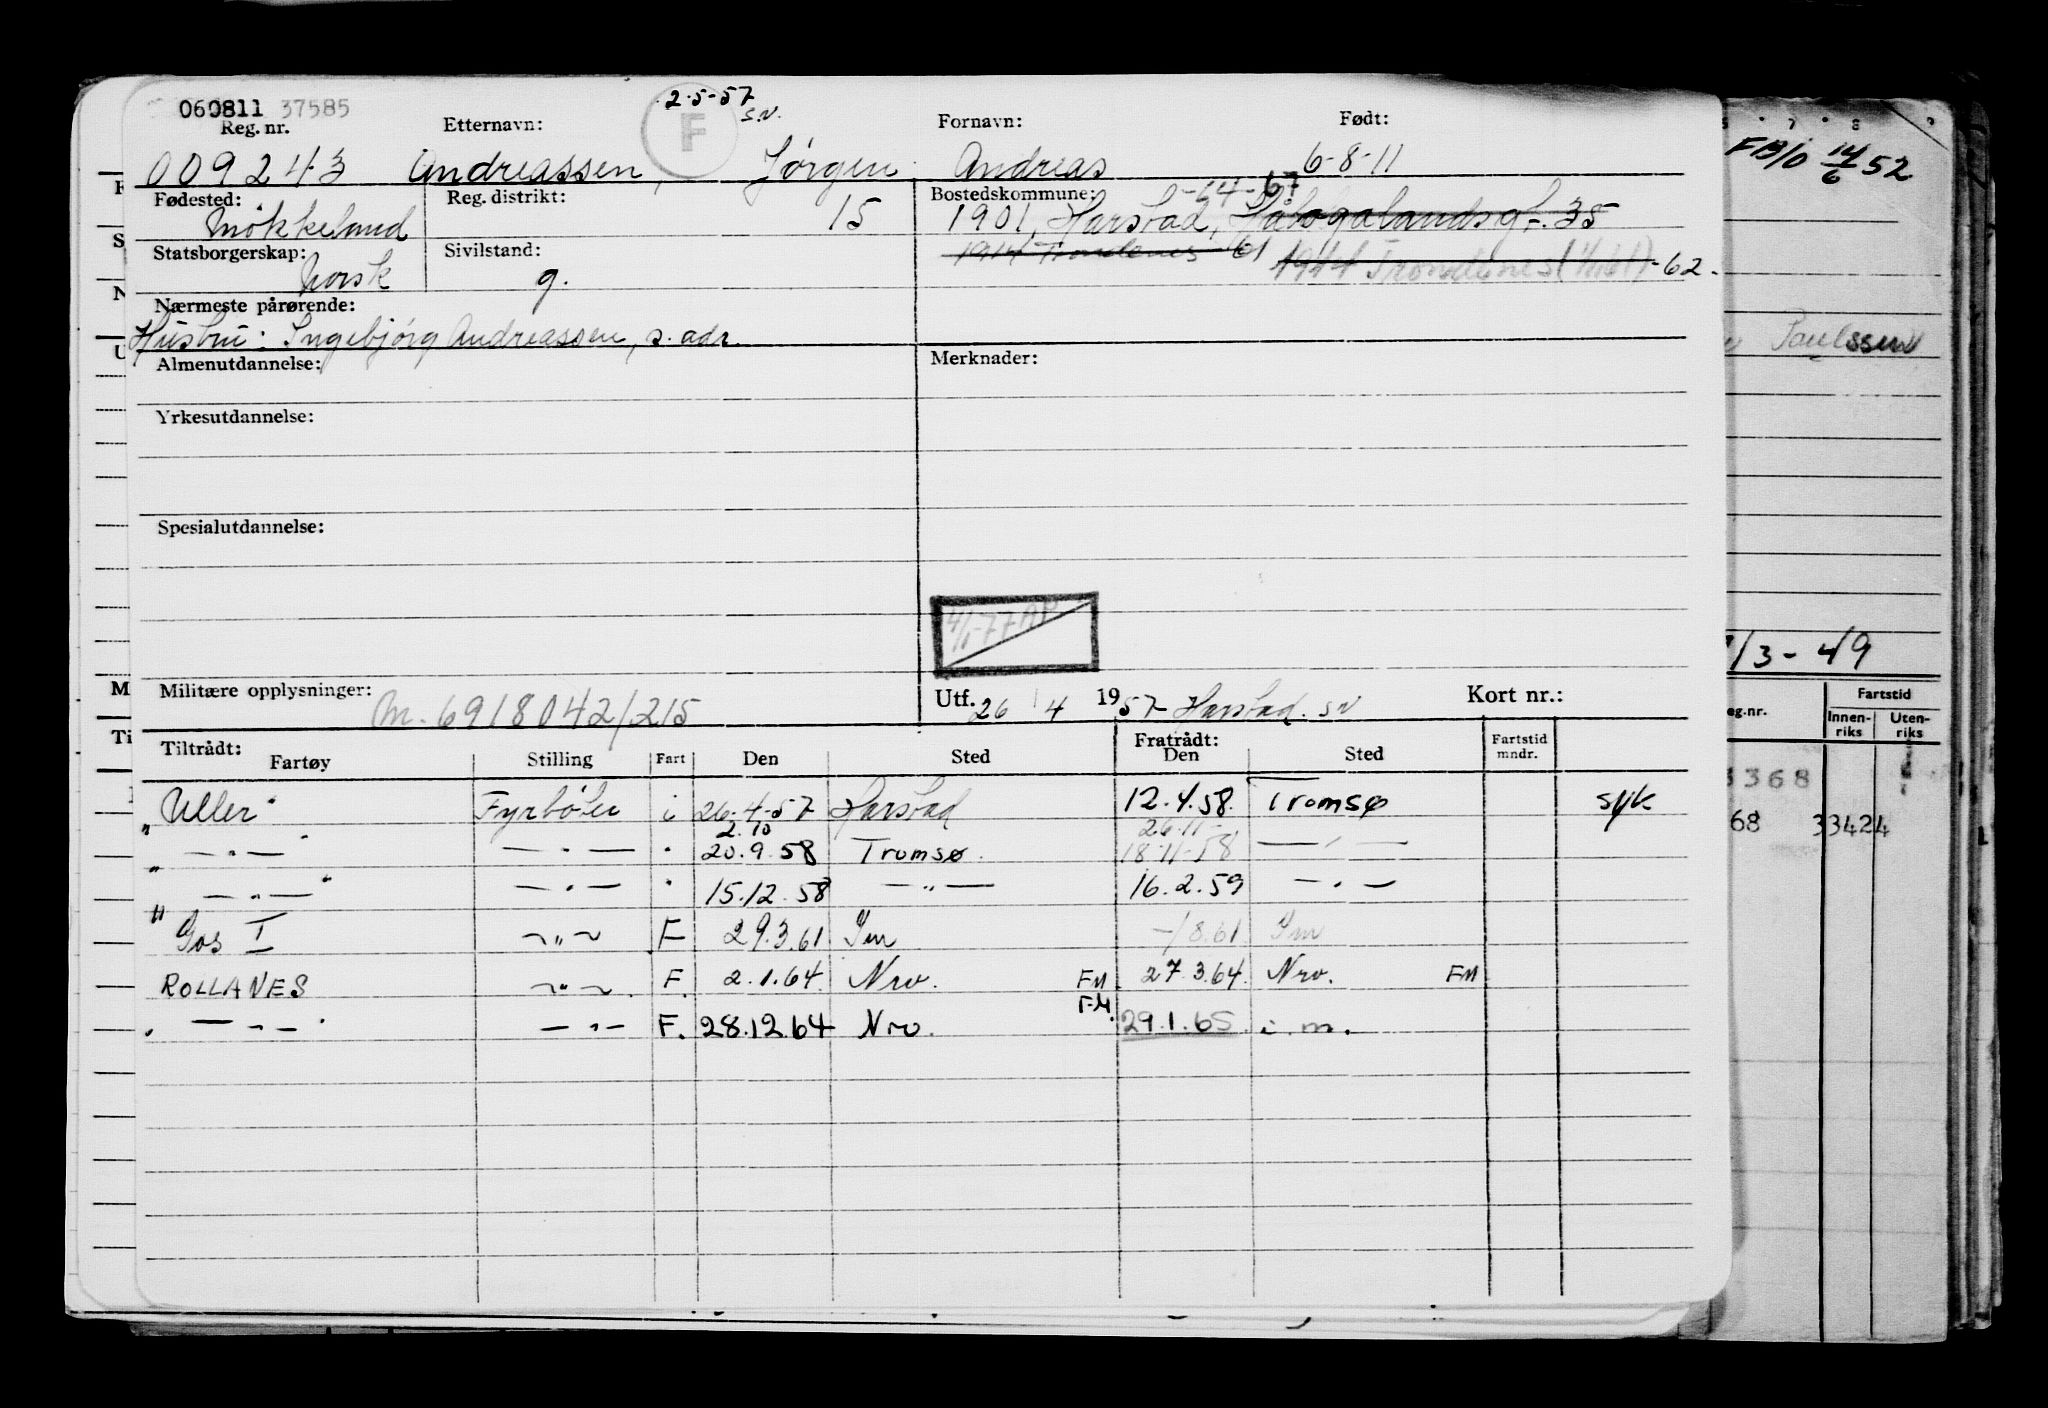 060811 37585 2-5-57 s.N. F
Reg. nr. Etternavn: Fornavn: Født:
009243 Andreassen, Jørgen Andreas 6-8-11
Fødested: Reg. distrikt: Bostedskommune: -64-67
Møkkeland 15 1901, Harstad, Hålogalandsgt. 35
Statsborgerskap: Sivilstand: 1914 Trondenes 61 1914 Trondenes -62.
Norsk g.
Nærmeste pårørende:
Hustru: Ingebjørg Andreassen, s. adr.
Almenutdannelse: Merknader:
Yrkesutdannelse:
Spesialutdannelse:
4/1-77 AP
Militære opplysninger: M. 6918042/215 Utf. 26/4 1957 Harstad. s N Kort nr.:
Tiltrådt: Fratrådt:
Fartøy Stilling Fart Den Sted Den Sted Fartstid mndr.
" Uller " Fyrbøter i 26-4-57 Harstad 12.4.58. Tromsø syk
2.10 26.11
" — " — " — " — " 20.9.58 Tromsø. 18.11.58 — " —
— " — " — " — " 15.12.58 — " — 16.2.59 — " —
" Gos I ~ " ~ F 29.3.61 Im -/8.61 Im
ROLLANES ~ " ~ F. 2.1.64. Nrv. FM 27.3.64. Nrv. FM
" — " — " — " — F. 28.12.64 Nrv. FM. 29.1.65. i.m.
FB/O 14/6 52
Paulssen
/3-49
Fartstid
eg.nr. Innenriks Utenriks
3368
68 33424